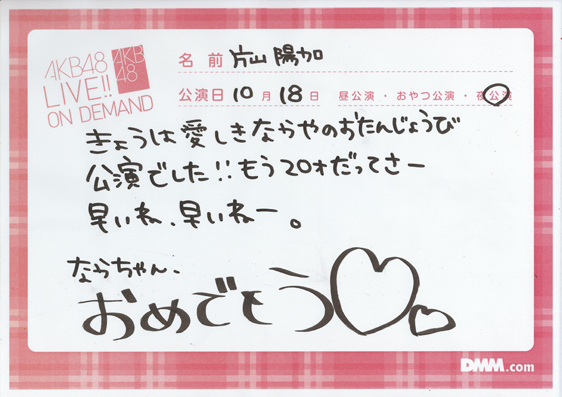 AKB48
LIVE!!
ON DEMAND
AKB
48
名 前 片山 陽加
公演日 10 月 18 日 昼公演・おやつ公演・夜公演
きょうは愛しきならやのおたんじょうび
公演でした!!もう20才だってさー
早いね、早いねー。
ならちゃん、
おめでとう♡♡
DMM.com